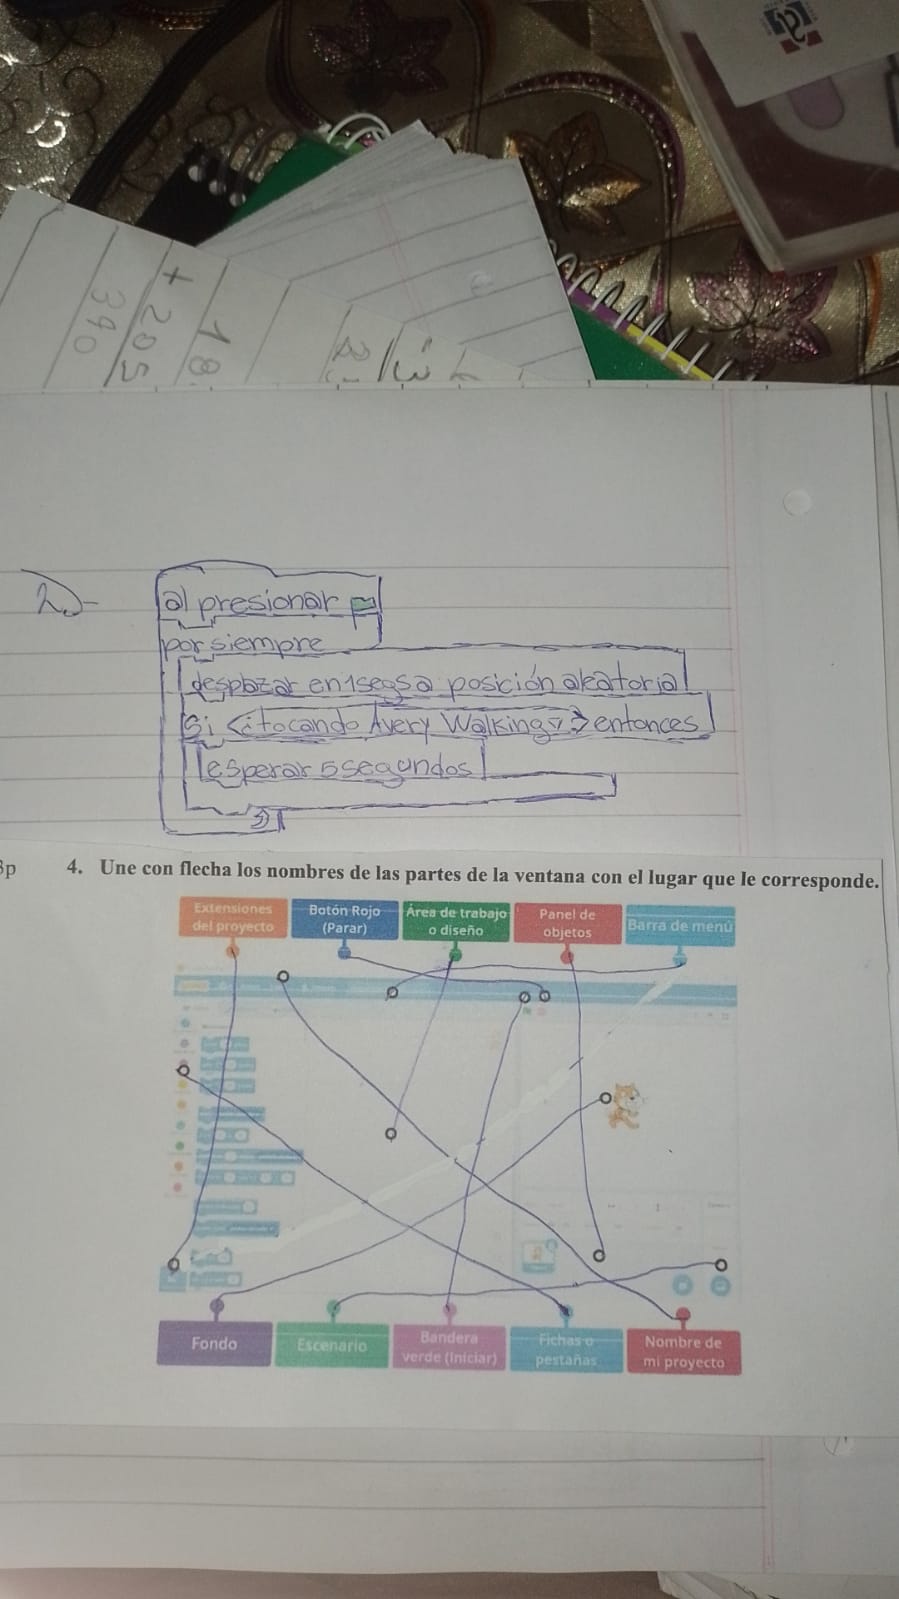 + 205
390
18
2)-
al presionar
por siempre
desplazar en 1 segs a posición aleatoria
si < ¿tocando Avery Walking ▿ ? > entonces
esperar 5 segundos
3p 4. Une con flecha los nombres de las partes de la ventana con el lugar que le corresponde.
Extensiones del proyecto
Botón Rojo (Parar)
Área de trabajo o diseño
Panel de objetos
Barra de menú
Fondo
Escenario
Bandera verde (Iniciar)
Fichas o pestañas
Nombre de mi proyecto